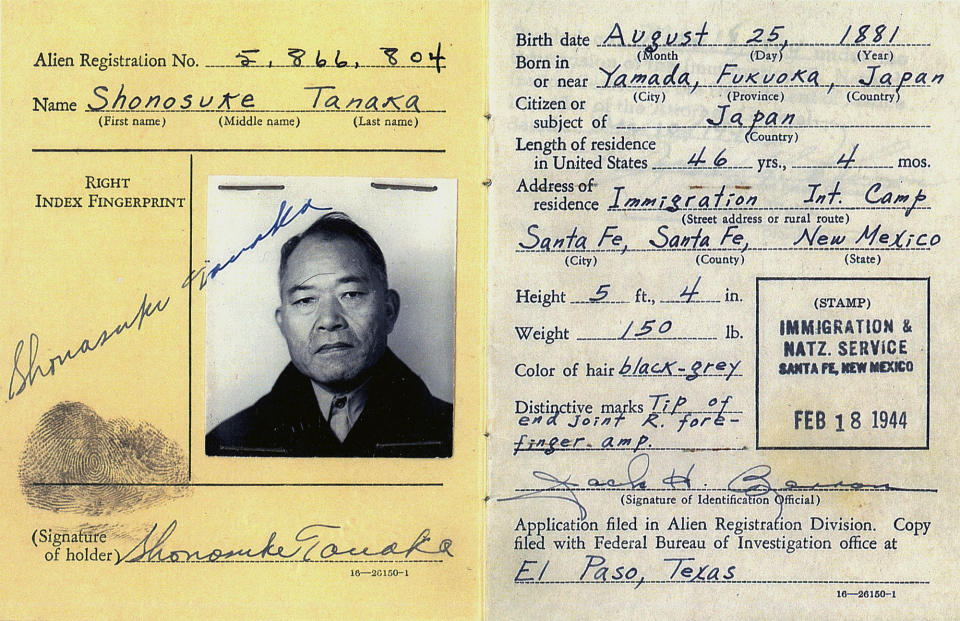 Alien Registration No. 5,866,804
Name Shonosuke Tanaka
(First name) (Middle name) (Last name)
RIGHT
INDEX FINGERPRINT
Shonosuke Tanaka
(Signature
of holder) Shonosuke Tanaka
16—26150-1
Birth date August 25, 1881
(Month) (Day) (Year)
Born in
or near Yamada, Fukuoka, Japan
(City) (Province) (Country)
Citizen or
subject of Japan
(Country)
Length of residence
in United States 46 yrs., 4 mos.
Address of
residence Immigration Int. Camp
(Street address or rural route)
Santa Fe, Santa Fe, New Mexico
(City) (County) (State)
Height 5 ft., 4 in.
Weight 150 lb.
Color of hair black-grey
Distinctive marks Tip of
end joint R. fore-
finger amp.
(STAMP)
IMMIGRATION &
NATZ. SERVICE
SANTA FE, NEW MEXICO
FEB 18 1944
Jack H.
(Signature of Identification Official)
Application filed in Alien Registration Division. Copy
filed with Federal Bureau of Investigation office at
El Paso, Texas
16—26150-1